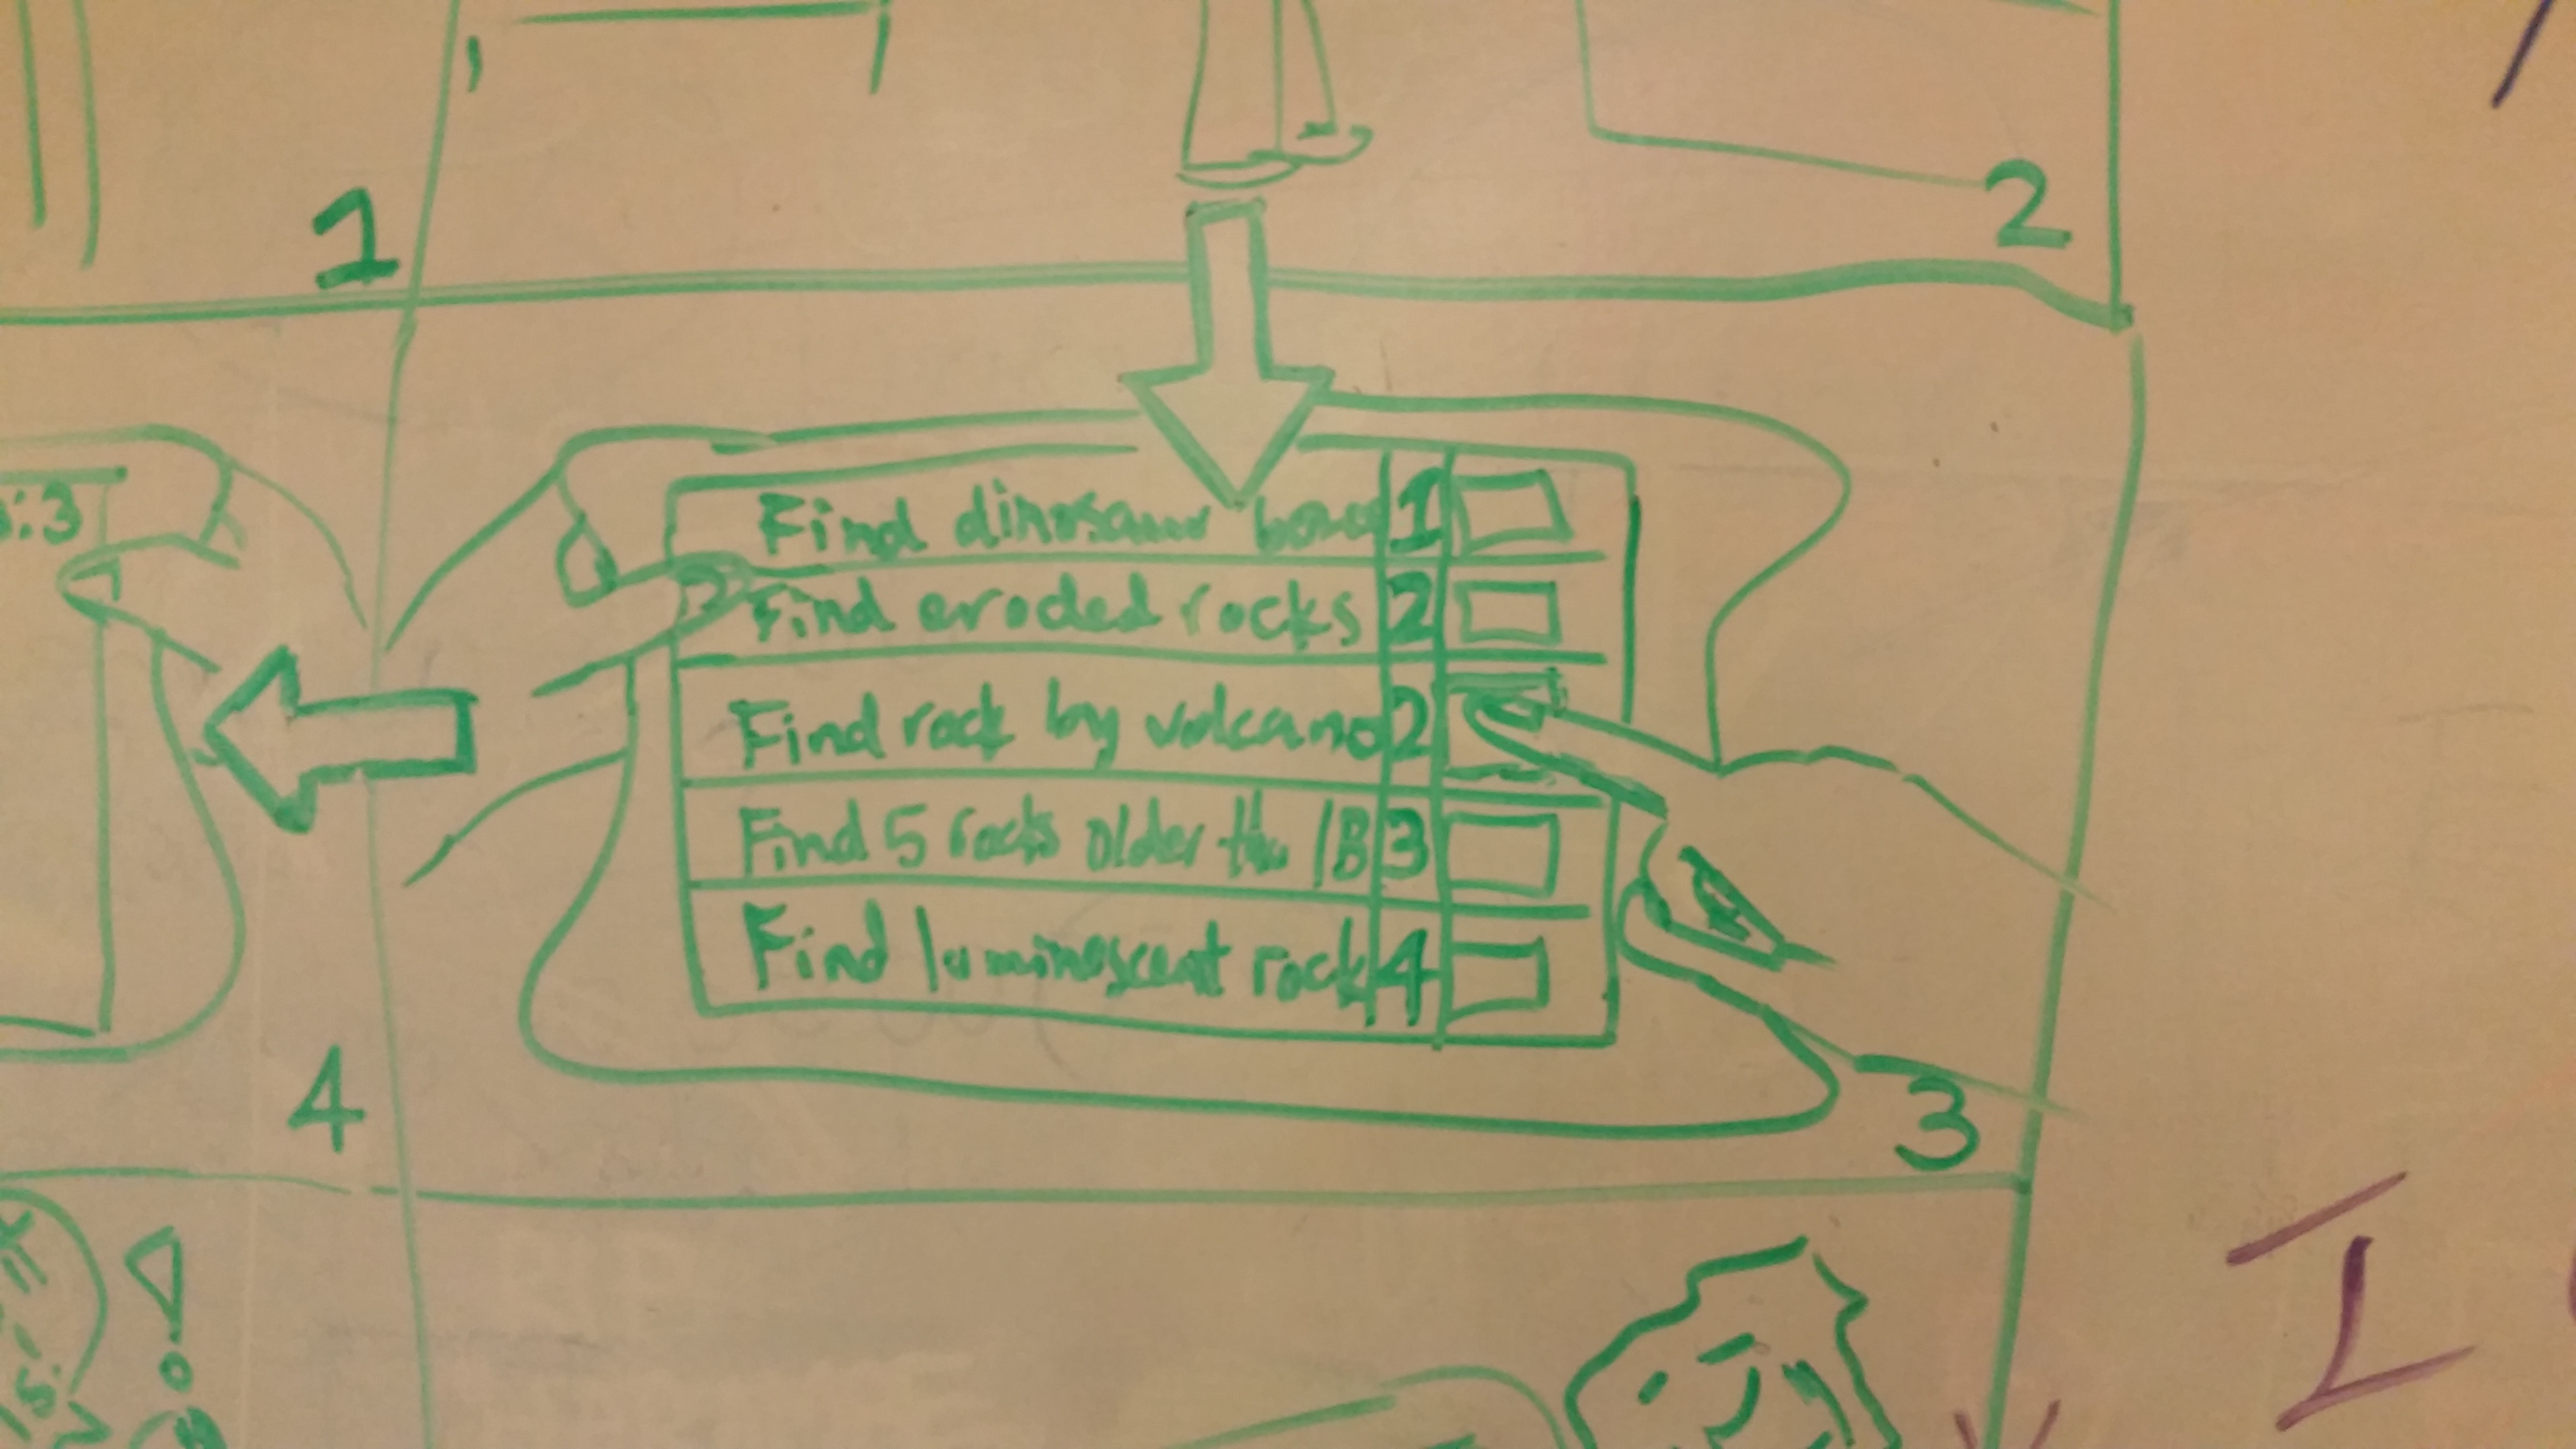 1
2
:3
Find dinosaur bone 1
Find eroded rocks 2
Find rock by volcano 2
Find 5 rocks older than 1B 3
Find luminescent rock 4
4
3
I